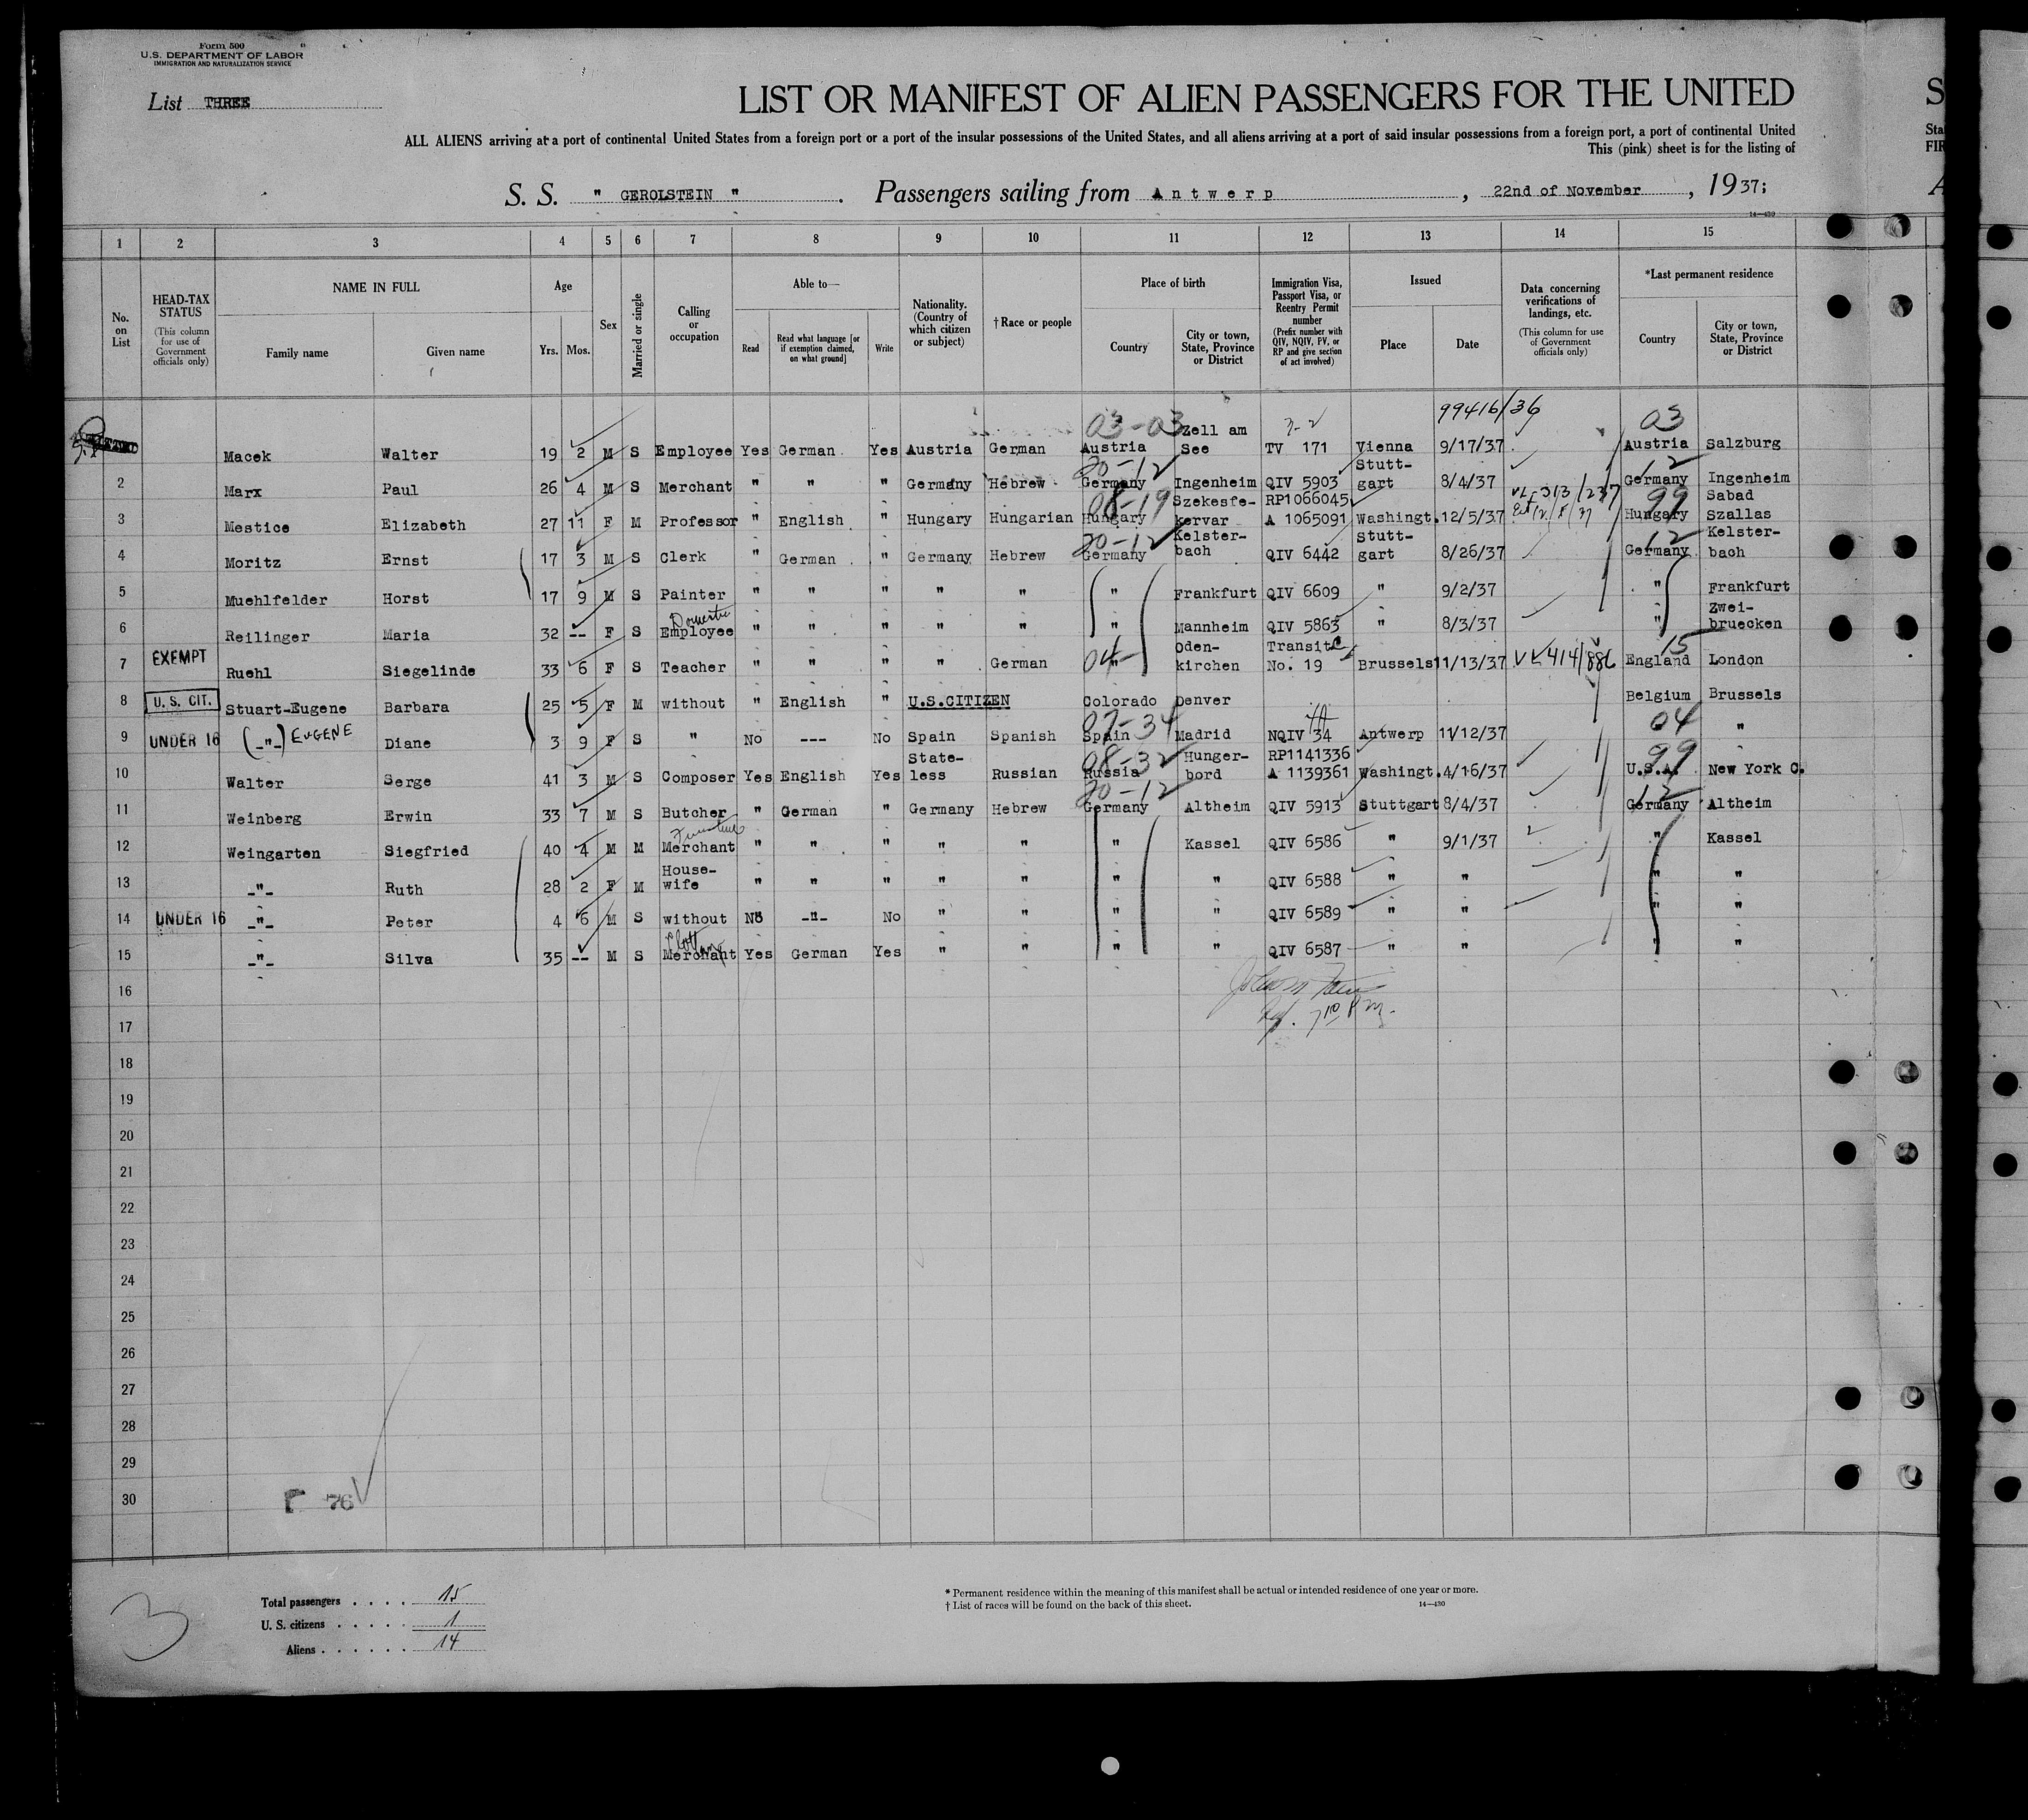 Form 500
U.S. DEPARTMENT OF LABOR
IMMIGRATION AND NATURALIZATION SERVICE
List THREE
LIST OR MANIFEST OF ALIEN PASSENGERS FOR THE UNITED
ALL ALIENS arriving at a port of continental United States from a foreign port or a port of the insular possessions of the United States, and all aliens arriving at a port of said insular possessions from a foreign port, a port of continental United
This (pink) sheet is for the listing of
S. S. " GEROLSTEIN " . Passengers sailing from Antwerp , 22nd of November , 1937;
14—430
1 2 3 4 5 6 7 8 9 10 11 12 13 14 15
No. on List
HEAD-TAX STATUS (This column for use of Government officials only)
NAME IN FULL Family name Given name
Age Yrs. Mos.
Sex
Married or single
Calling or occupation
Able to— Read Read what language [or if exemption claimed, on what ground] Write
Nationality. (Country of which citizen or subject)
† Race or people
Place of birth Country City or town, State, Province or District
Immigration Visa, Passport Visa, or Reentry Permit number (Prefix number with QIV, NQIV, PV, or RP and give section of act involved)
Issued Place Date
Data concerning verifications of landings, etc. (This column for use of Government officials only)
*Last permanent residence Country City or town, State, Province or District
99416/36
03-03 03
Macek Walter 19 2 M S Employee Yes German Yes Austria German Austria Zell am See TV 171 Vienna 9/17/37 Austria Salzburg
20-12 12
2 Marx Paul 26 4 M S Merchant " " " Germany Hebrew Germany Ingenheim QIV 5903 Stutt-gart 8/4/37 Germany Ingenheim
08-19 99
3 Mestice Elizabeth 27 11 F M Professor " English " Hungary Hungarian Hungary Szekesfe-kervar RP1066045 A 1065091 Washingt. 12/5/37 Hungary Sabad Szallas
20-12 12
4 Moritz Ernst 17 3 M S Clerk " German " Germany Hebrew Germany Kelster-bach QIV 6442 Stutt-gart 8/26/37 Germany Kelster-bach
5 Muehlfelder Horst 17 9 M S Painter " " " " " " Frankfurt QIV 6609 " 9/2/37 " Frankfurt
Domestic
6 Reilinger Maria 32 -- F S Employee " " " " " " Mannheim QIV 5863 " 8/3/37 " Zwei-bruecken
04 15
7 EXEMPT Ruehl Siegelinde 33 6 F S Teacher " " " " German " Oden-kirchen Transit No. 19 Brussels 11/13/37 England London
8 U. S. CIT. Stuart-Eugene Barbara 25 5 F M without " English " U.S.CITIZEN Colorado Denver Belgium Brussels
07-34 04
9 UNDER 16 (-"-) EUGENE Diane 3 9 F S " No --- No Spain Spanish Spain Madrid NQIV 34 Antwerp 11/12/37 "
08-32 99
10 Walter Serge 41 3 M S Composer Yes English Yes State-less Russian Russia Hunger-bord RP1141336 A 1139361 Washingt. 4/16/37 U.S.A. New York C.
20-12 12
11 Weinberg Erwin 33 7 M S Butcher " German " Germany Hebrew Germany Altheim QIV 5913 Stuttgart 8/4/37 Germany Altheim
12 Weingarten Siegfried 40 4 M M Merchant " " " " " " Kassel QIV 6586 " 9/1/37 " Kassel
13 -"- Ruth 28 2 F M House-wife " " " " " " " QIV 6588 " " " "
14 UNDER 16 -"- Peter 4 6 M S without No -"- No " " " " QIV 6589 " " " "
15 -"- Silva 35 -- M S Merchant Yes German Yes " " " " QIV 6587 " " " "
16
17
18
19
20
21
22
23
24
25
26
27
28
29
30
76
3
Total passengers . . . . 15
U. S. citizens . . . . . 1
Aliens . . . . . . 14
* Permanent residence within the meaning of this manifest shall be actual or intended residence of one year or more.
† List of races will be found on the back of this sheet. 14—430